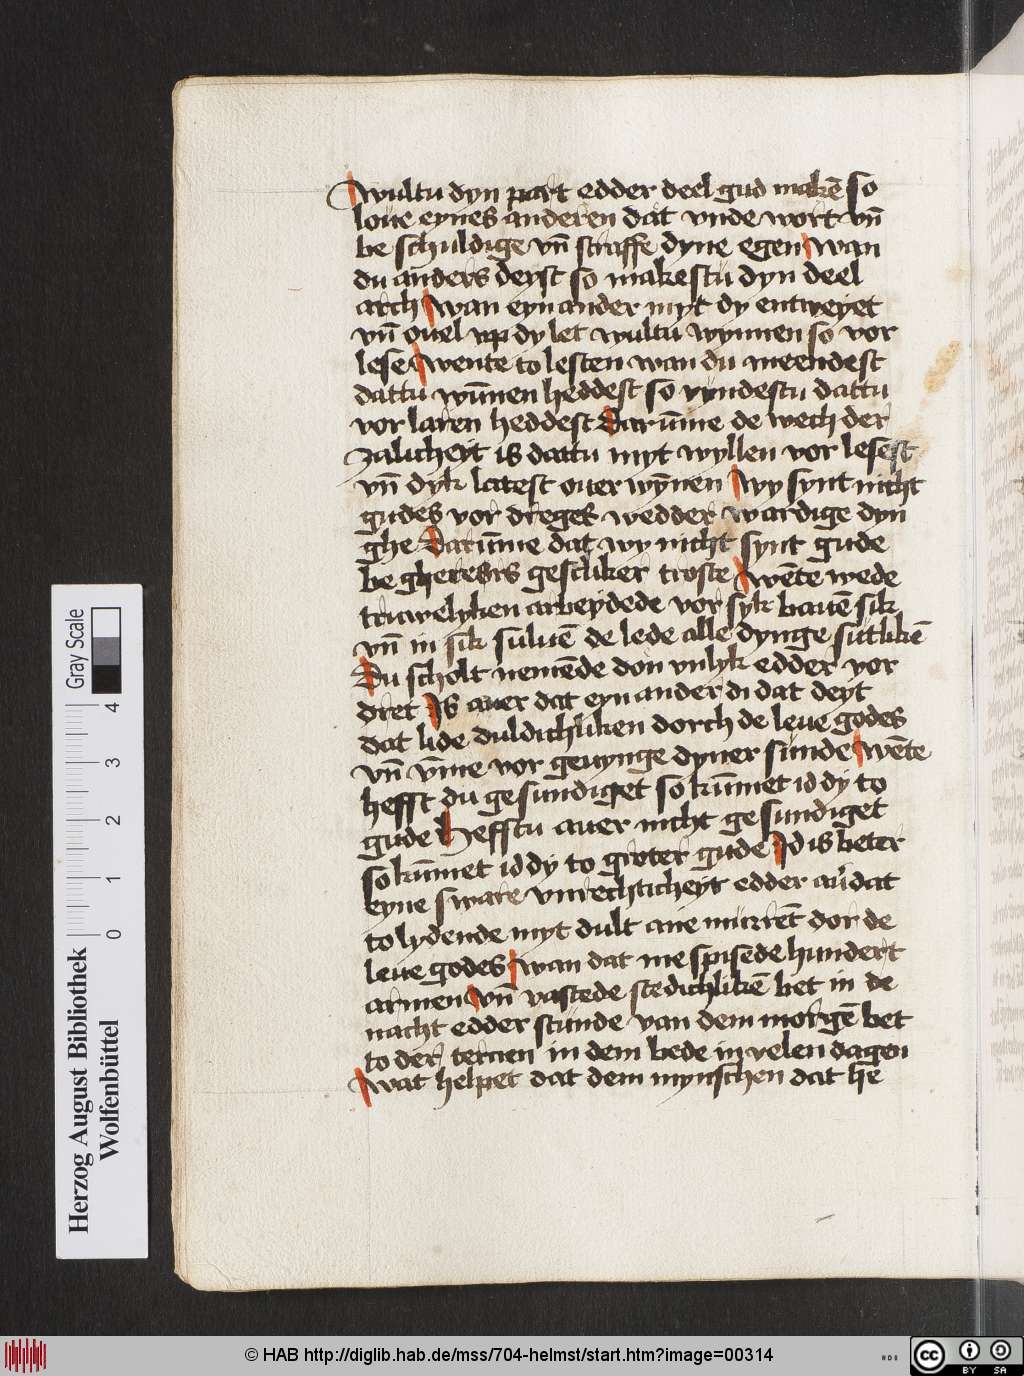 Wultu dyn part edder deel gud makē so
loue eynes anderen dat vnde wort vn̄
be schuldige vn̄ straffe dyne egen Wan
du anders deyst so makestu dyn deel
arch Wan eyn ander myt dy entweyet
vn̄ ouel vp dy let wultu wynnen so vor
lese Wente to lesten wan du meendest
dattu wūnen heddest so vyndestu dattu
vor laren heddest Darūme de wech der
zalicheyt is dattu myt wyllen vor lesest
vn̄ dyk latest ouer wȳnen Wy synt nicht
gudes vor dreges wedder wardige dyn
ghe Darūme dat wy nicht synt gude
be gherers geschker troste Wēte wede
truwelyken arbeydede vor syk bauē sik
vn̄ in sik suluē de lede alle dynge sutlikē
Du scholt nemēde don vnlyk edder vor
dret Is auer dat eyn ander di dat deyt
dat lide duldichliken dorch de leue godes
vn̄ v̄me vor geuynge dyner sunde Wēte
hefft du gesundiget so kūmet id dy to
gude Hefftu auer nicht gesundiget
so kūmet id dy to groter gude Id is beter
eyne sware vnrechticheyt edder au̇dat
to lydende myt dult ane murrēt dor de
leue godes Wan dat me spisede hundert
armen Vn̄ vastede stedichlikē bet in de
nacht edder stunde van dem morgē bet
to der tercien in dem bede in velen dagen
Wat helpet dat dem mynschen dat he
Herzog August Bibliothek
Wolfenbüttel
Gray Scale
0 1 2 3 4
© HAB http://diglib.hab.de/mss/704-helmst/start.htm?image=00314
cc BY SA